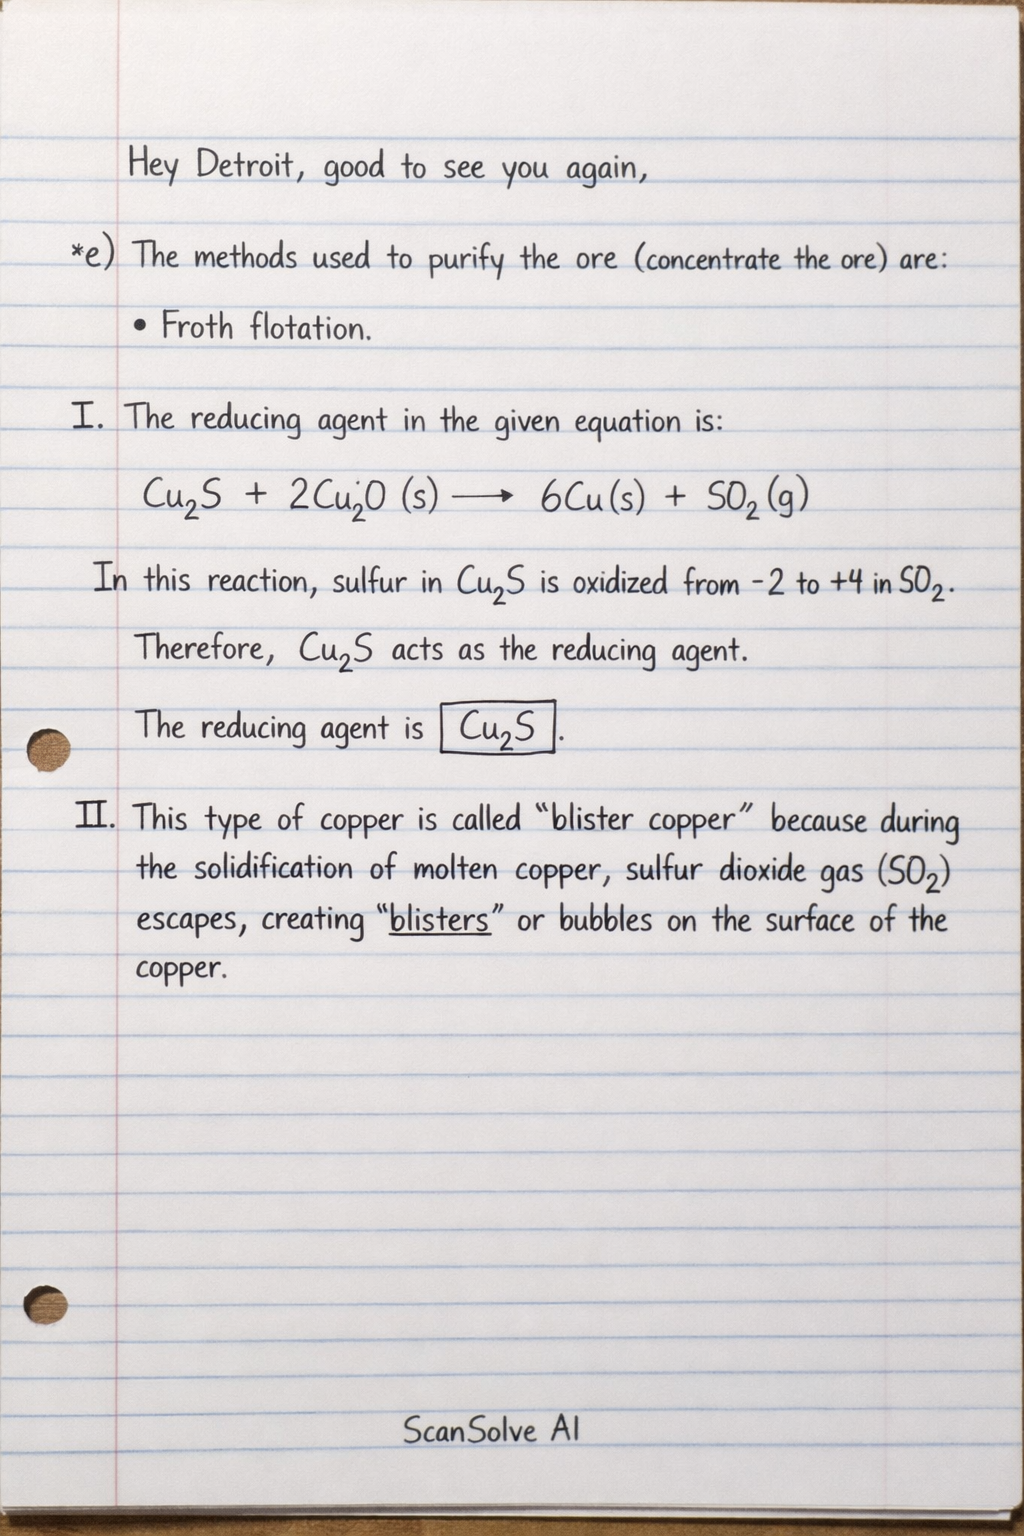 Hey Detroit, good to see you again,
*e) The methods used to purify the ore (concentrate the ore) are:
• Froth flotation.
I. The reducing agent in the given equation is:
Cu₂S + 2Cu₂O (s) ⟶ 6Cu(s) + SO₂(g)
In this reaction, sulfur in Cu₂S is oxidized from -2 to +4 in SO₂.
Therefore, Cu₂S acts as the reducing agent.
The reducing agent is Cu₂S.
II. This type of copper is called “blister copper” because during
the solidification of molten copper, sulfur dioxide gas (SO₂)
escapes, creating “blisters” or bubbles on the surface of the
copper.
ScanSolve AI